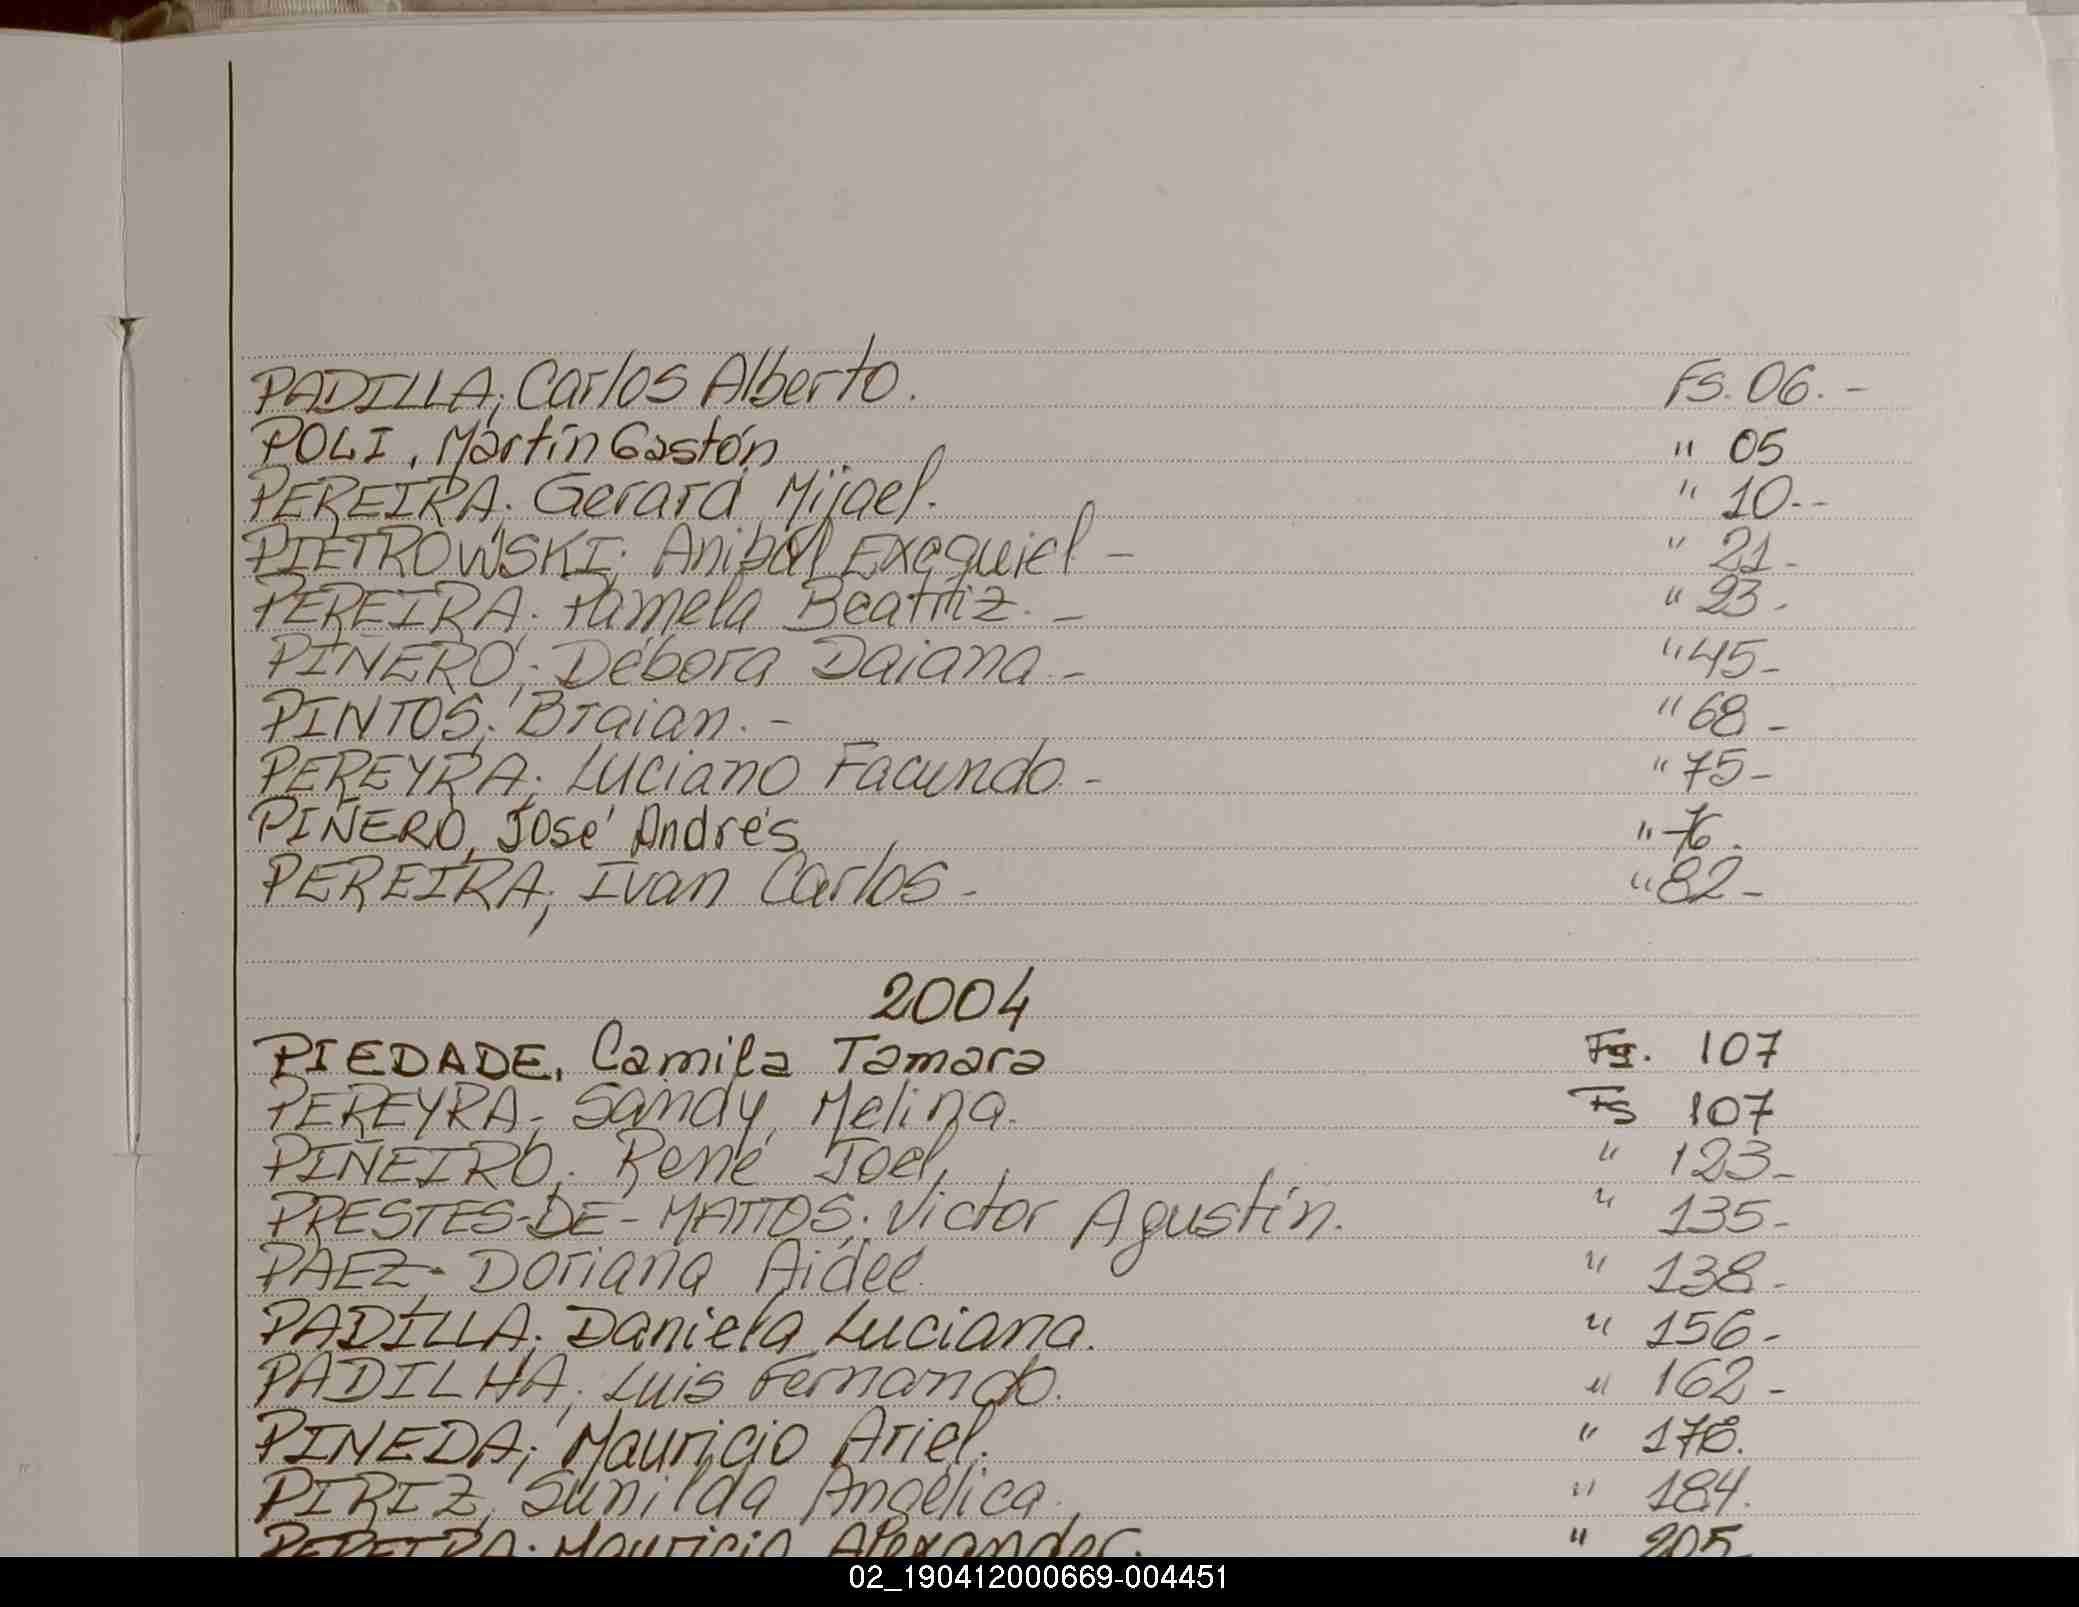 PADILLA; Carlos Alberto. Fs. 06. -
POLI, Martín Gastón " 05
PEREIRA; Gerard Mijael. " 10--
PIETROWSKI; Anibal Exequiel - " 21-
PEREIRA; Pamela Beatriz. - " 23-
PIÑERO; Débora Daiana.- " 45-
PINTOS; Braian. - " 68-
PEREYRA; Luciano Facundo- " 75-
PIÑERO, José Andrés " 76.
PEREIRA; Ivan Carlos- " 82-
2004
PIEDADE, Camila Tamara Fs. 107
PEREYRA; Sandy Melina. Fs 107
PIÑEIRO; René Joel. " 123-
PRESTES-DE-MATTOS; Victor Agustín. " 135-
PAEZ; Doriana Aidee. " 138-
PADILLA; Daniela Luciana. " 156-
PADILHA; Luis Fernando. " 162-
PINEDA; Mauricio Ariel. " 178.
PIRIZ; Sunilda Angélica. " 184.
PEREIRA; Mauricio Alexander. " 205
02_190412000669-004451